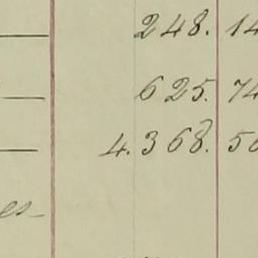 248. 14
625. 74
4.368.
es